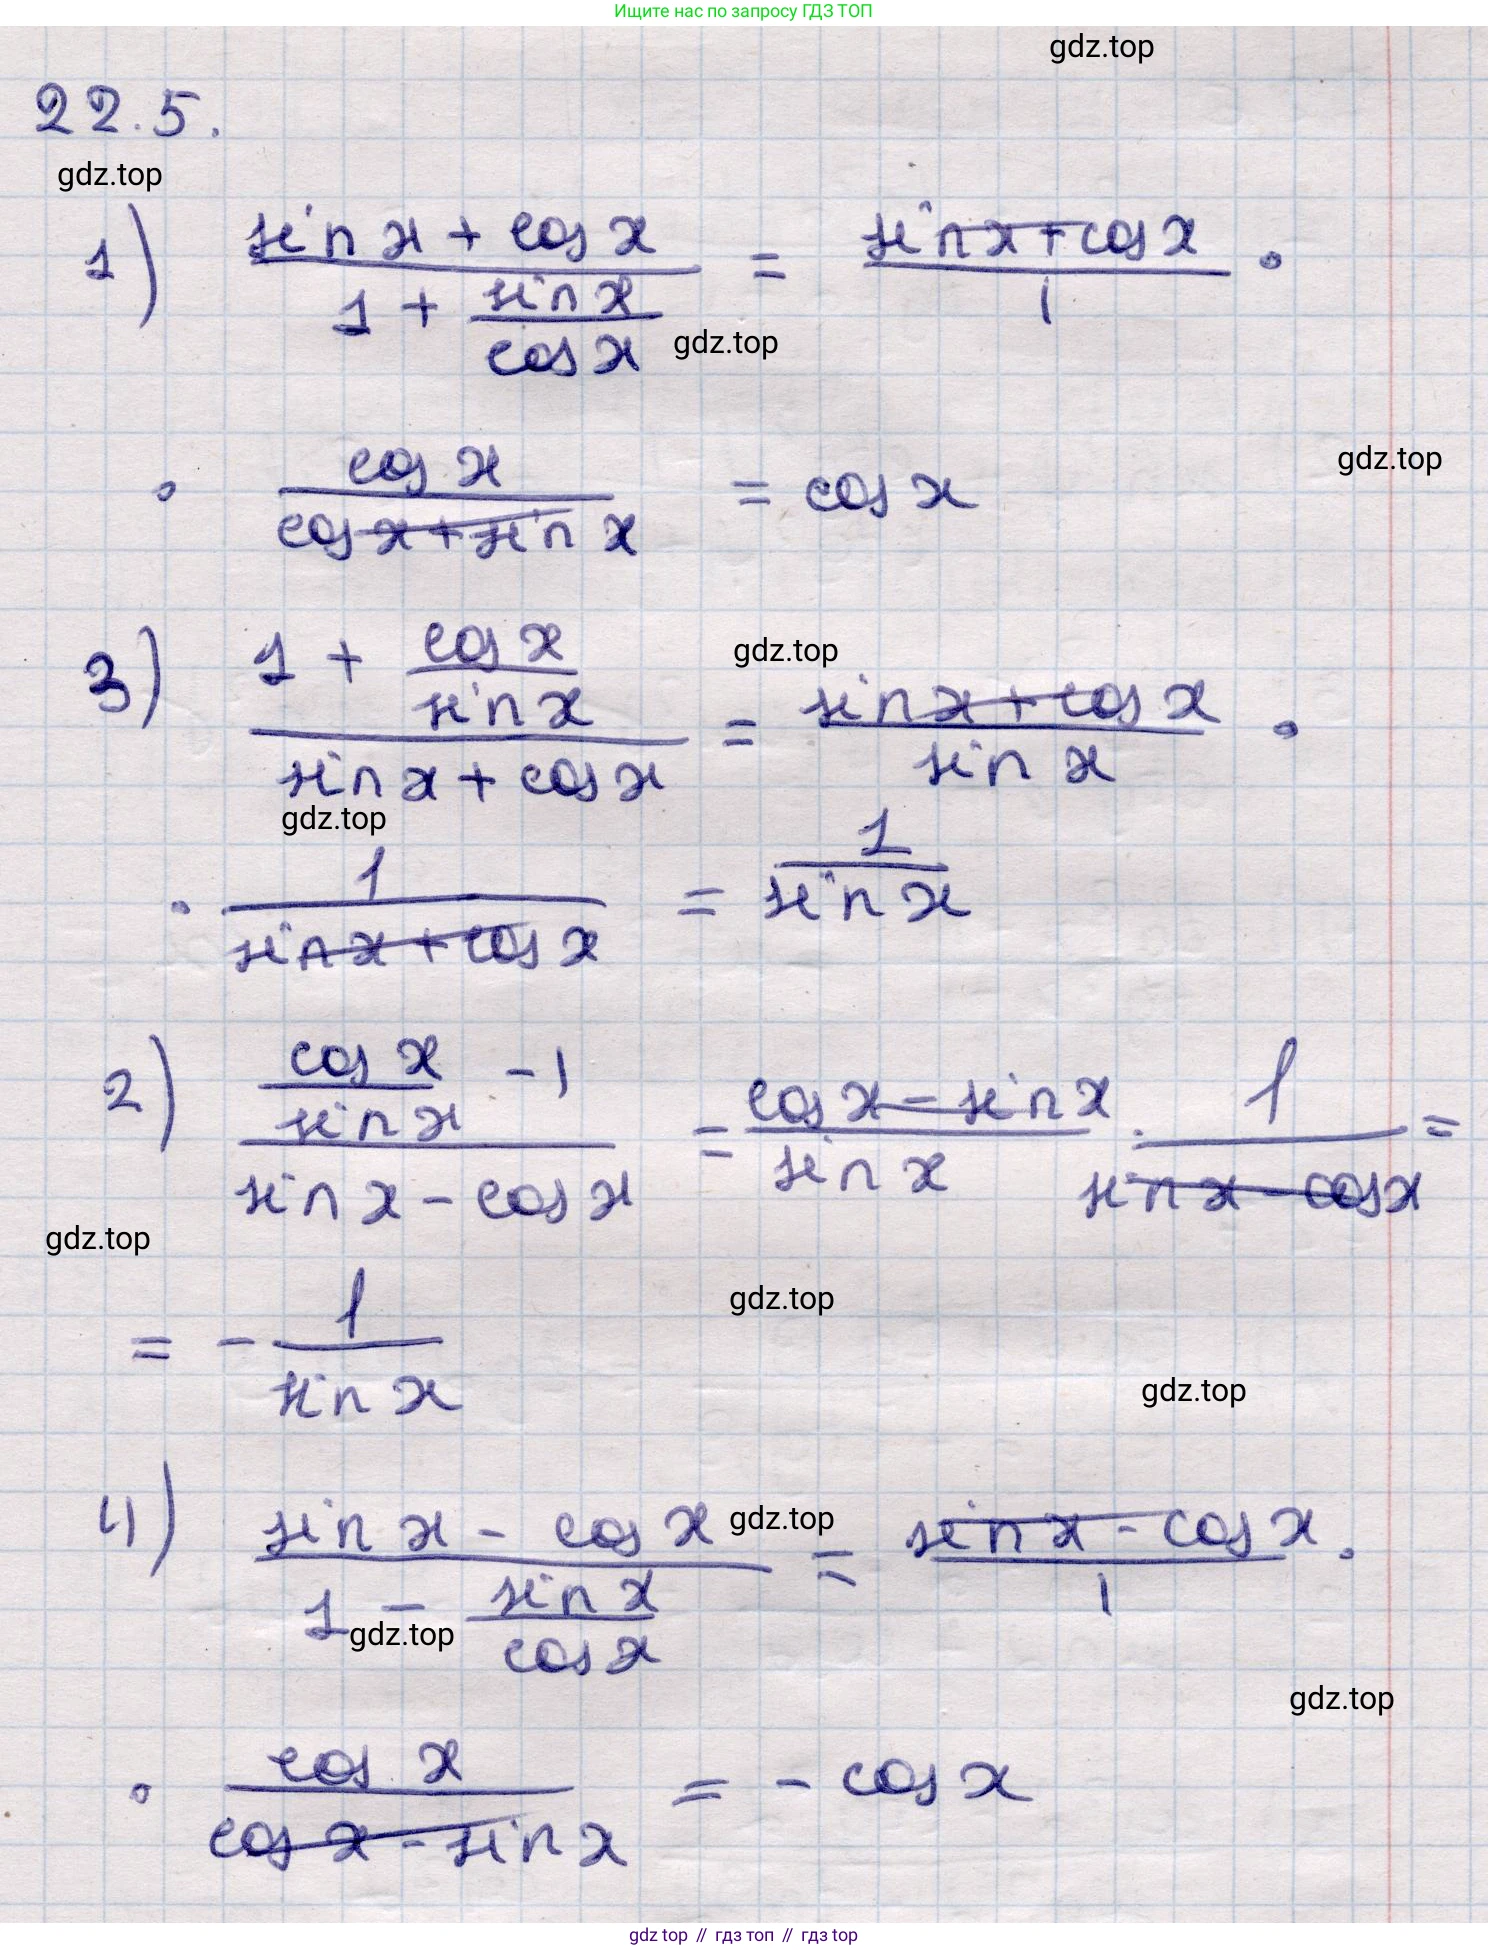 Ищите нас по запросу ГДЗ ТОП
gdz.top
22.5.
gdz.top
1) (sin x + cos x)/(1 + sin x/cos x) = (sin x + cos x)/1 ·
gdz.top
gdz.top
· cos x/(cos x + sin x) = cos x
gdz.top
3) (1 + cos x/sin x)/(sin x + cos x) = (sin x + cos x)/sin x ·
gdz.top
· 1/(sin x + cos x) = 1/sin x
2) (cos x/sin x - 1)/(sin x - cos x) = (cos x - sin x)/sin x · 1/(sin x - cos x) =
gdz.top
gdz.top
= - 1/sin x
gdz.top
4) (sin x - cos x)/(1 - sin x/cos x) = (sin x - cos x)/1 ·
gdz.top
gdz.top
gdz.top
· cos x/(cos x - sin x) = - cos x
gdz top // гдз топ // гдз top